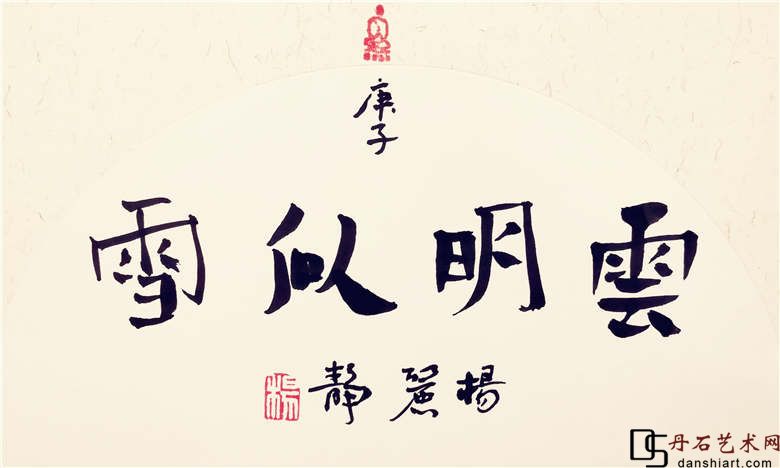 庚子
雲明似雪
楊麗靜
楊
DS 丹石艺术网
danshiart.com